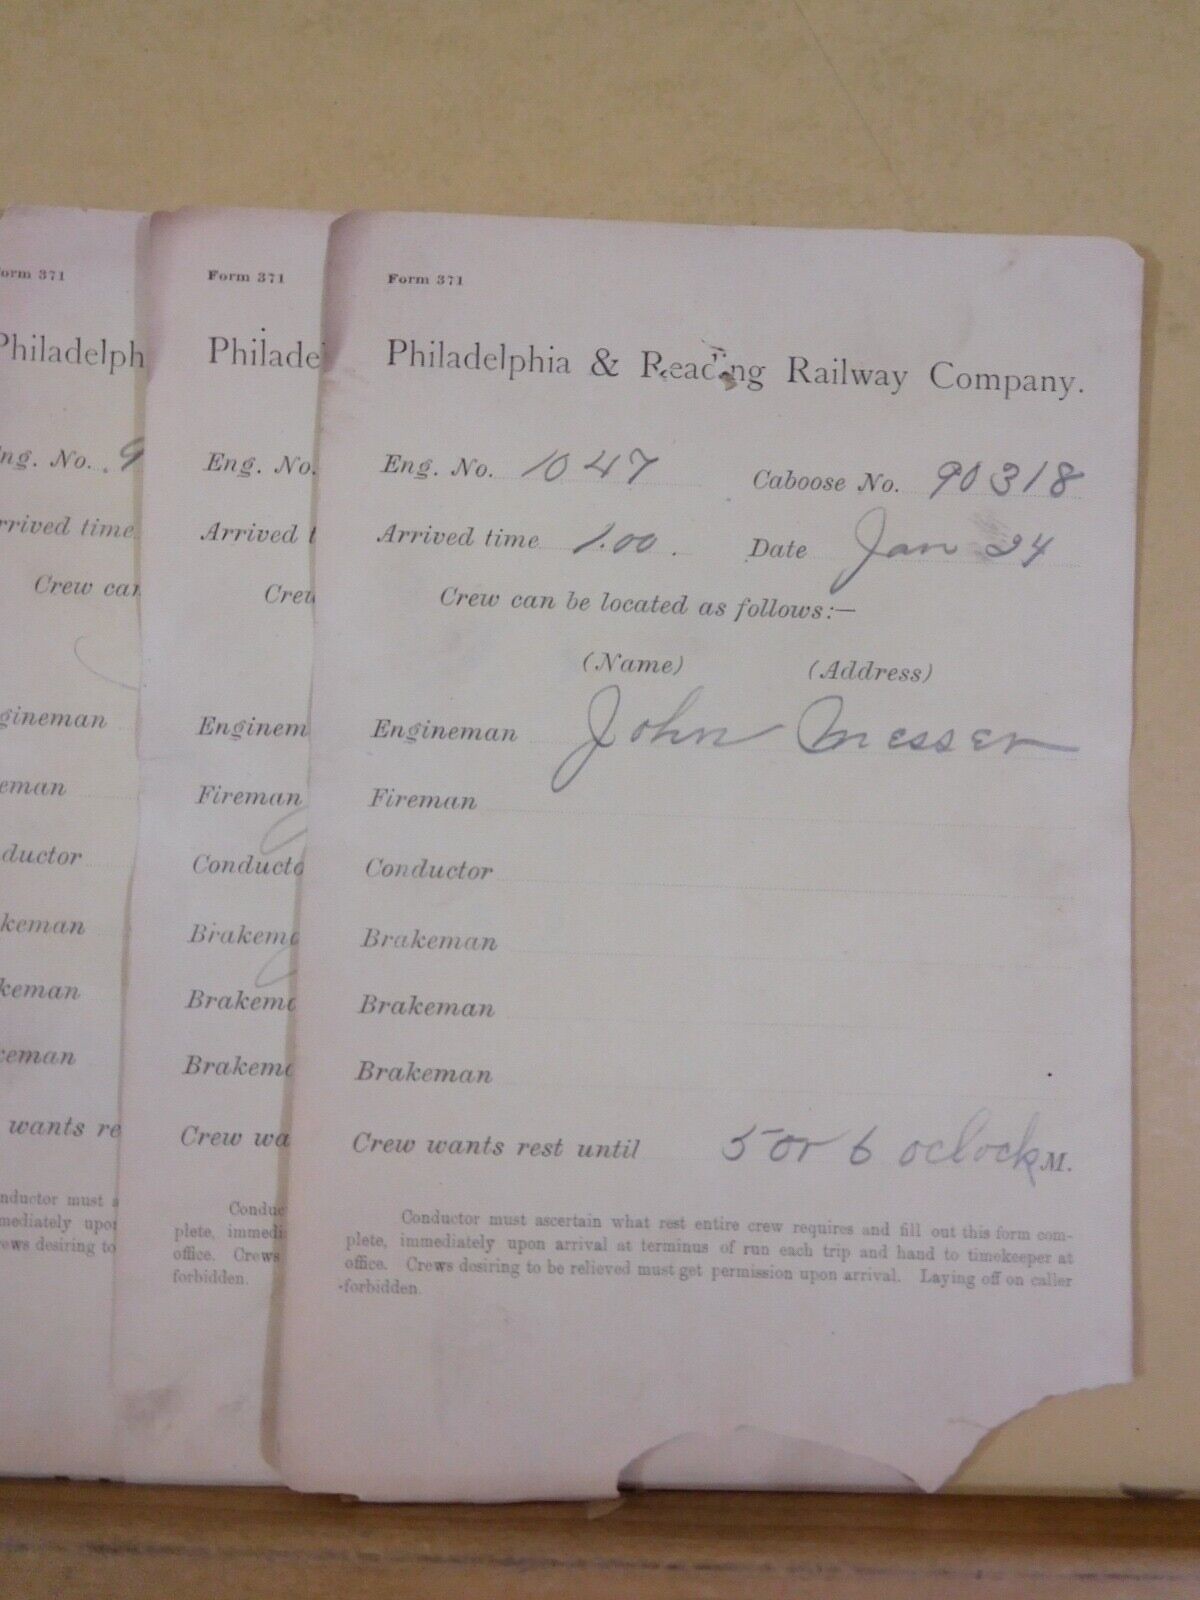 Form 371
Philadelph
ng. No. 9
rrived time
Crew can
gineman
eman
ductor
keman
keman
keman
wants re
nductor must a
mediately upon
ews desiring to
Form 371
Philade
Eng. No.
Arrived t
Crew
Enginem
Fireman
Conducto
Brakema
Brakema
Brakema
Crew wa
Conduc
plete, immedi
office. Crews
forbidden.
Form 371
Philadelphia & Reading Railway Company.
Eng. No. 1047 Caboose No. 90318
Arrived time 1.00. Date Jan 24
Crew can be located as follows:—
(Name) (Address)
Engineman John Messer
Fireman
Conductor
Brakeman
Brakeman
Brakeman
Crew wants rest until 5 or 6 oclock M.
Conductor must ascertain what rest entire crew requires and fill out this form com-
plete, immediately upon arrival at terminus of run each trip and hand to timekeeper at
office. Crews desiring to be relieved must get permission upon arrival. Laying off on caller
forbidden.